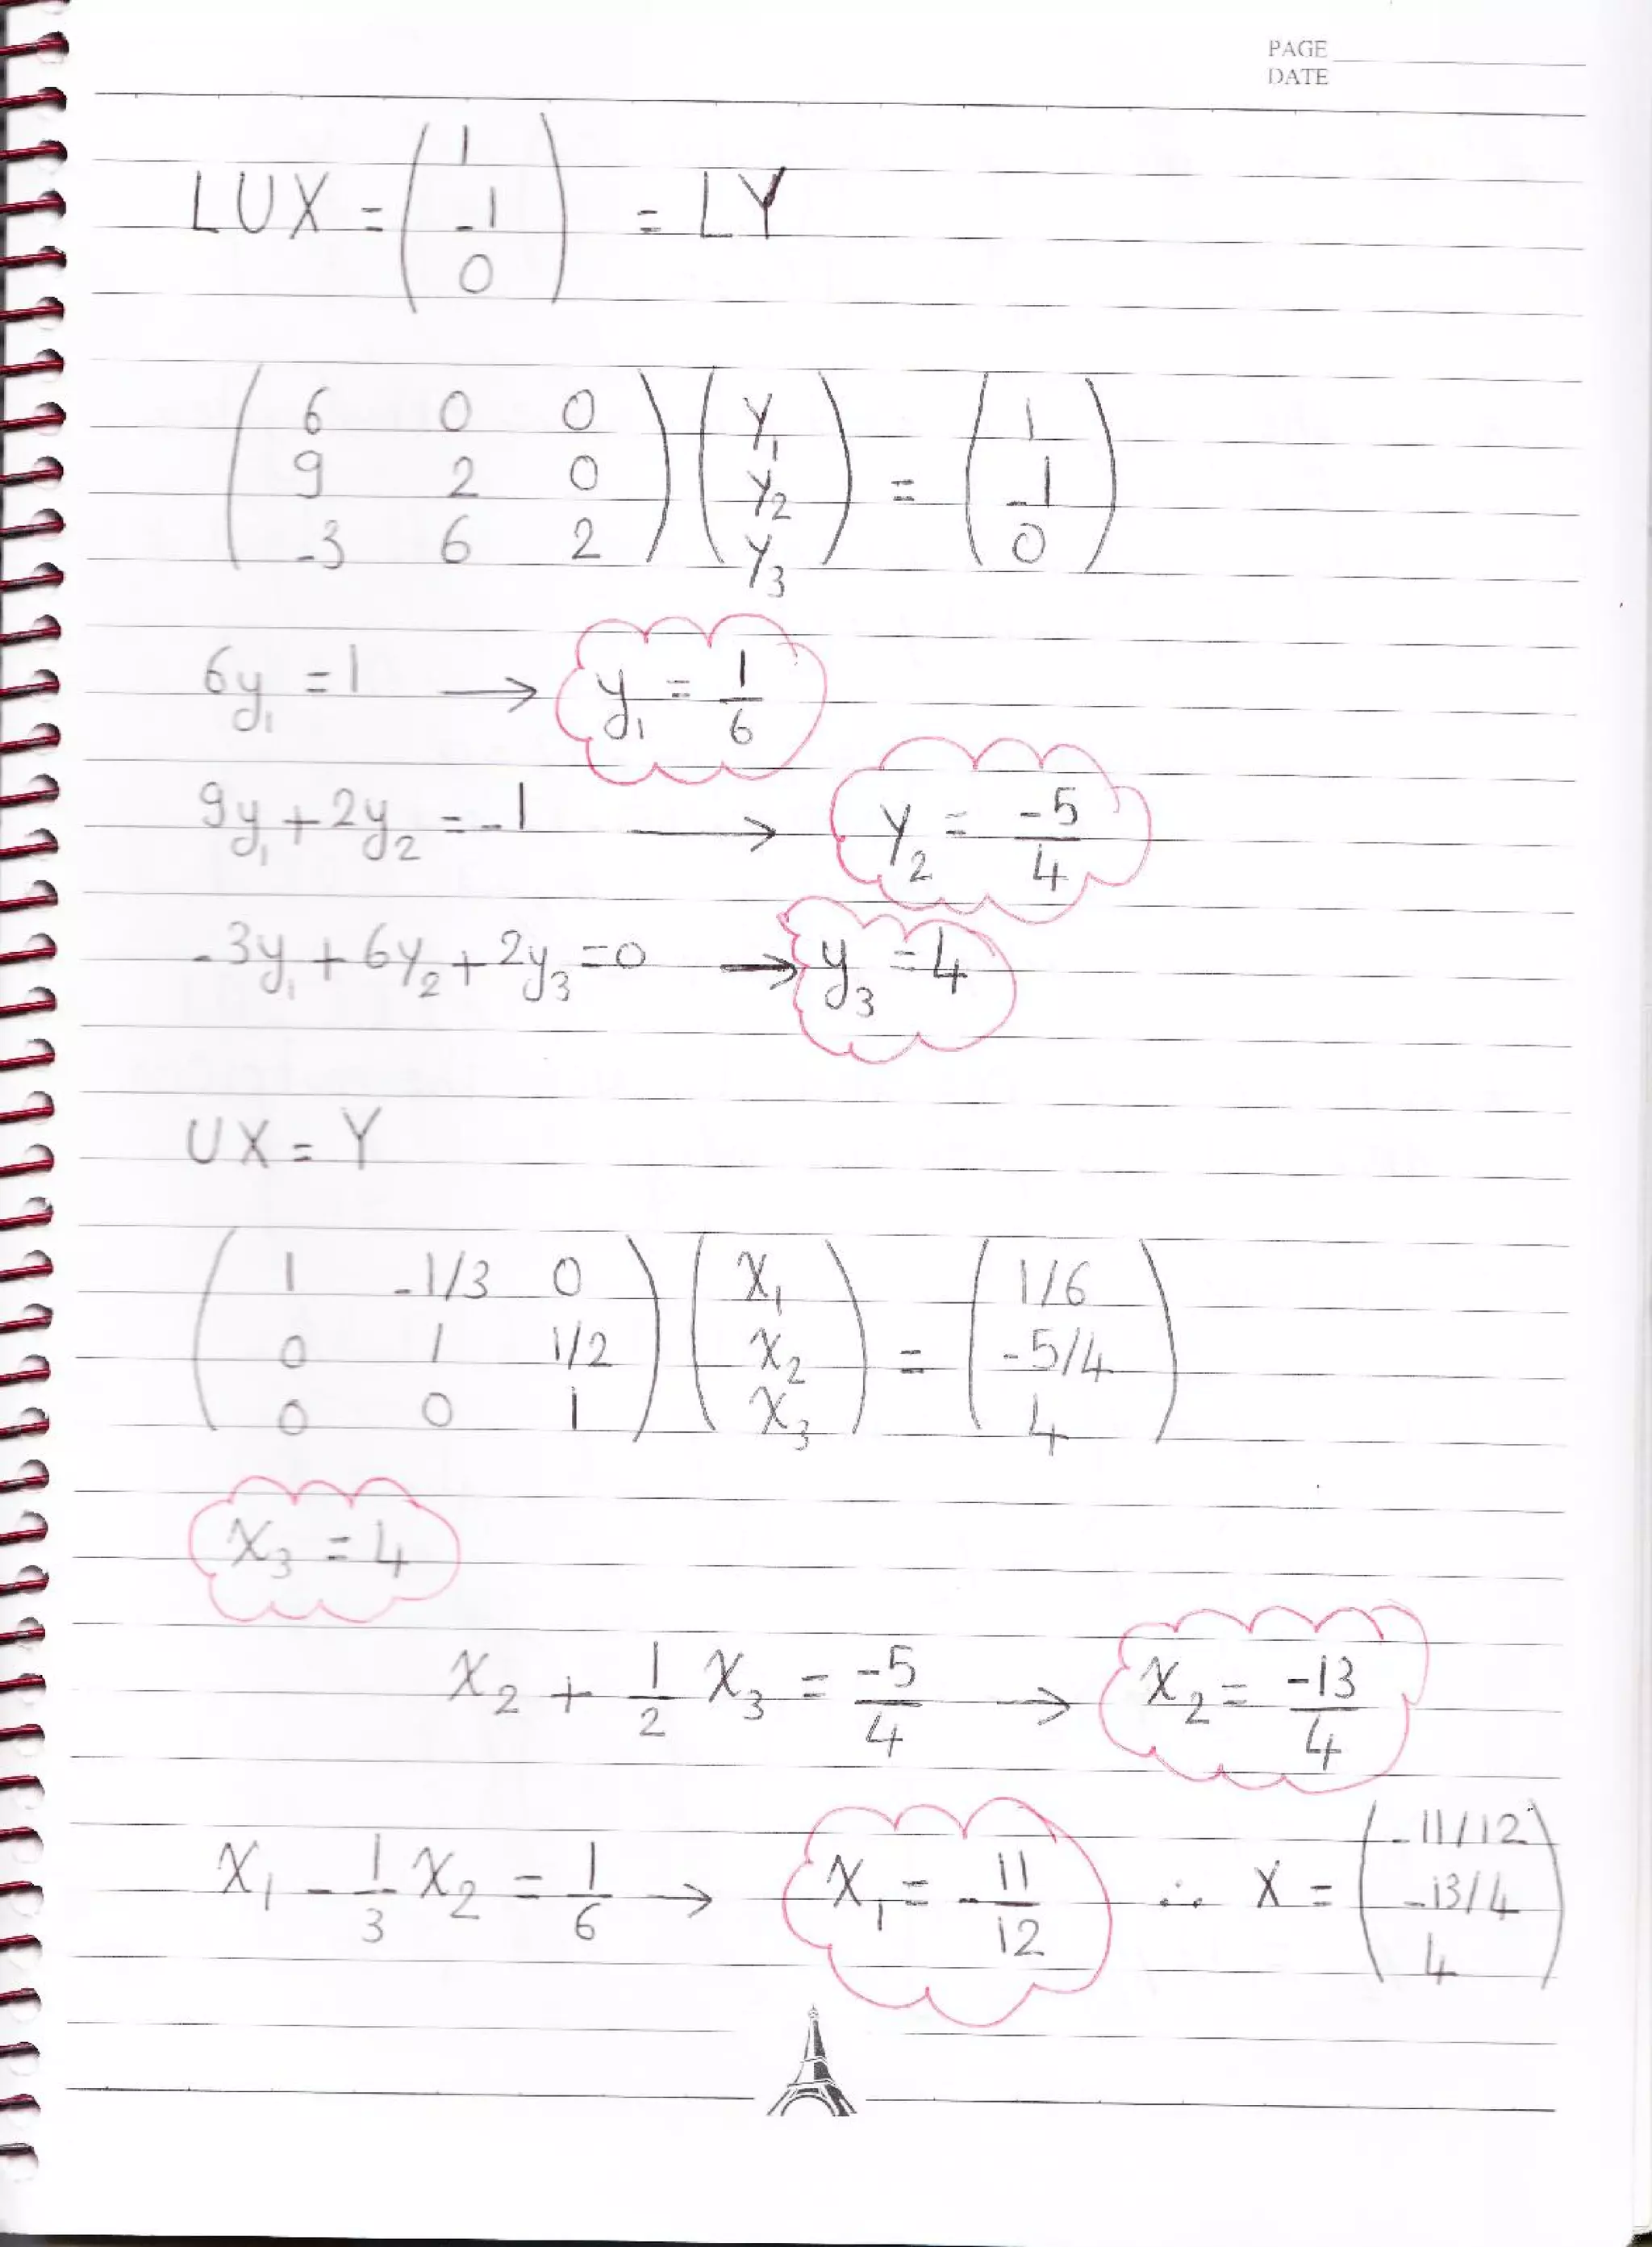 PAGE
DATE
LUX = ( 1 -1 0 ) = LY
( 6 0 0 ) ( y₁ ) = ( 1 )
( 9 2 0 ) ( y₂ ) = ( -1 )
( -3 6 2 ) ( y₃ ) = ( 0 )
6y₁ = 1 → y₁ = 1/6
9y₁ + 2y₂ = -1 → y₂ = -5/4
-3y₁ + 6y₂ + 2y₃ = 0 → y₃ = 4
UX = Y
( 1 -1/3 0 ) ( x₁ ) = ( 1/6 )
( 0 1 1/2 ) ( x₂ ) = ( -5/4 )
( 0 0 1 ) ( x₃ ) = ( 4 )
x₃ = 4
x₂ + 1/2 x₃ = -5/4 → x₂ = -13/4
x₁ - 1/3 x₂ = 1/6 → x₁ = -11/12 ∴ X = ( -11/12 -13/4 4 )